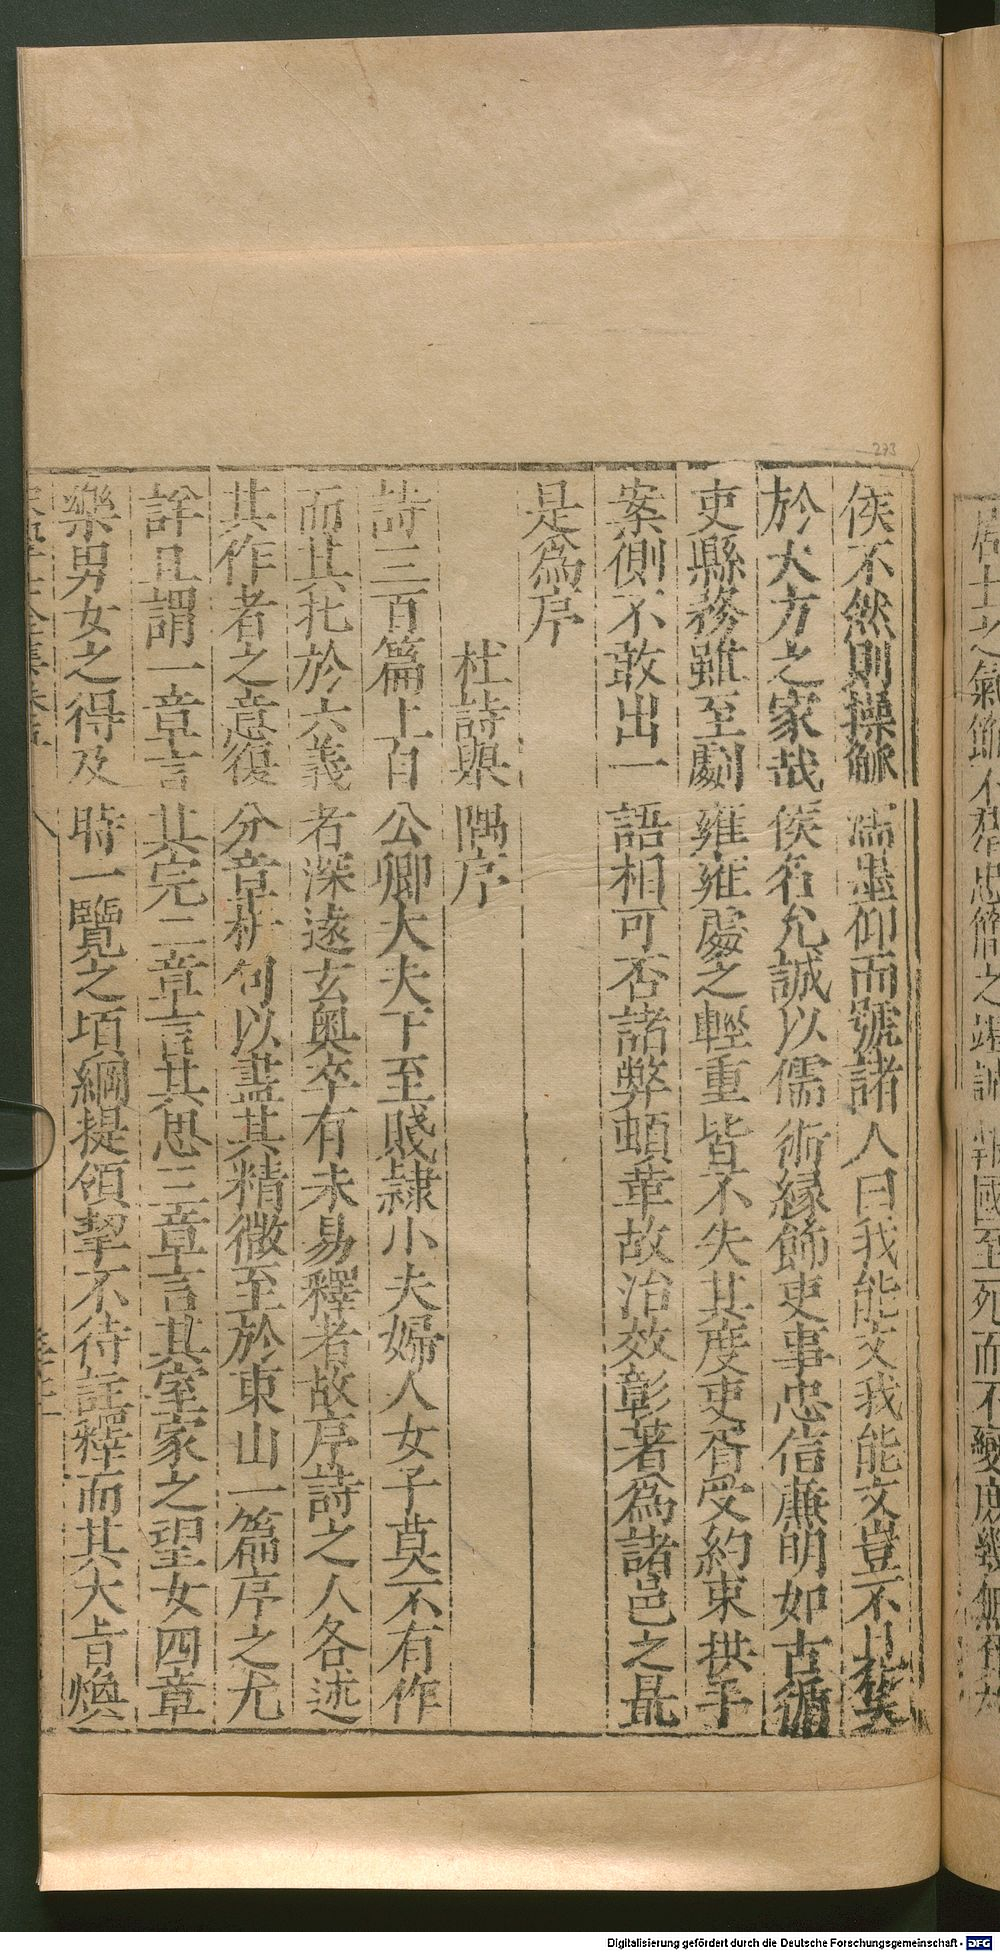 273
侯不然則操觚濡墨仰而號諸人曰我能文我能文豈不見笑
於大方之家哉侯名允誠以儒術緣飾吏事忠信廉明如古循
吏縣務雖至劇雍雍處之輕重皆不失其度吏胥受約束拱手
案側不敢出一語相可否諸弊頓革故治效彰著爲諸邑之最
是爲序
杜詩舉隅序
詩三百篇上自公卿大夫下至賤隸小夫婦人女子莫不有作
而其托於六義者深遠玄奧卒有未易釋者故序詩之人各述
其作者之意復分章析句以盡其精微至於東山一篇序之尤
詳且謂一章言其完二章言其思三章言其室家之望女四章
樂男女之得及時一覽之頃綱提領挈不待註釋而其大旨煥
居士之氣節不
忠
之
誠
報國至死而不變
Digitalisierung gefördert durch die Deutsche Forschungsgemeinschaft - DFG